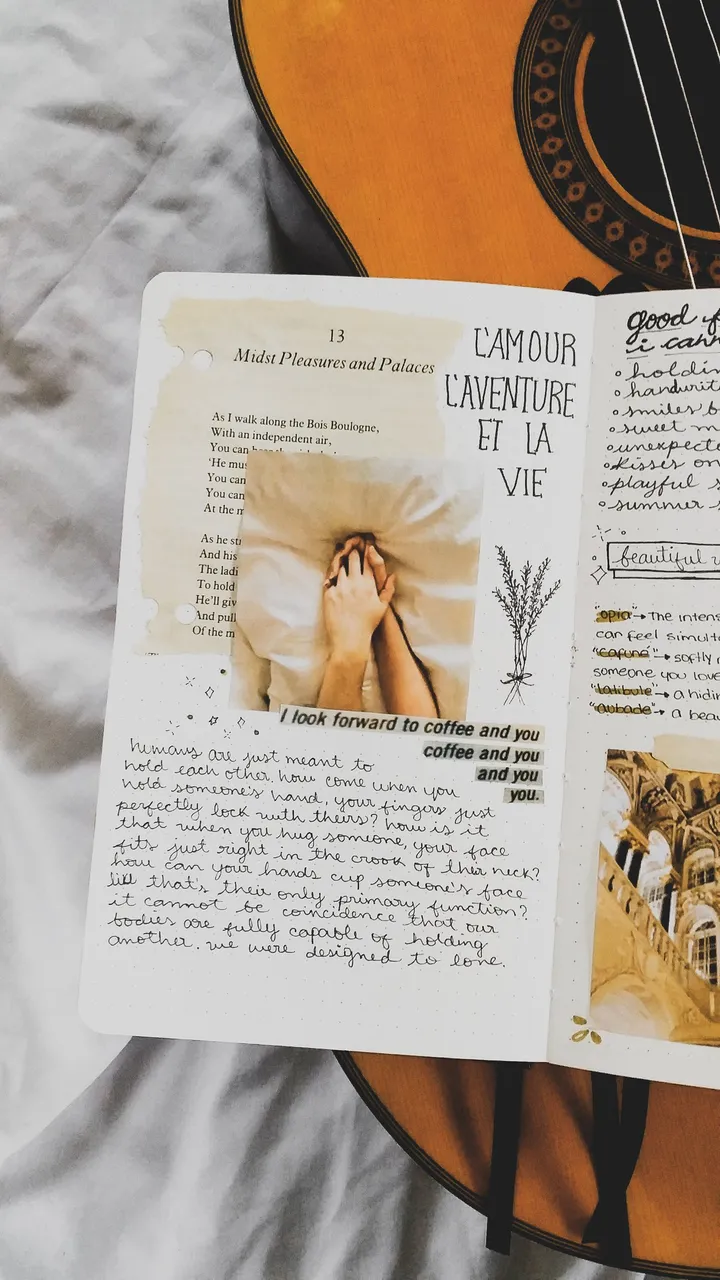 13
Midst Pleasures and Palaces
As I walk along the Bois Boulogne,
With an independent air,
You can
'He mus
You can
You can
At the m
As he st
And his
The ladi
To hold
He'll giv
And pull
Of the m
L'AMOUR
L'AVENTURE
ET LA
VIE
I look forward to coffee and you
coffee and you
and you
you.
humans are just meant to
hold each other. how come when you
hold someone's hand, your fingers just
perfectly lock with theirs? how is it
that when you hug someone, your face
fits just right in the crook of their neck?
how can your hands cup someone's face
like that's their only primary function?
it cannot be coincidence that our
bodies are fully capable of holding
another. we were designed to love.
good f
i cann
holdin
handwrit
smiles b
sweet m
unexpecte
kisses on
playful s
summer s
beautiful w
"opia" → The intens
can feel simult
"cafuné" → softly
someone you love
"latibule" → a hidin
"aubade" → a beau